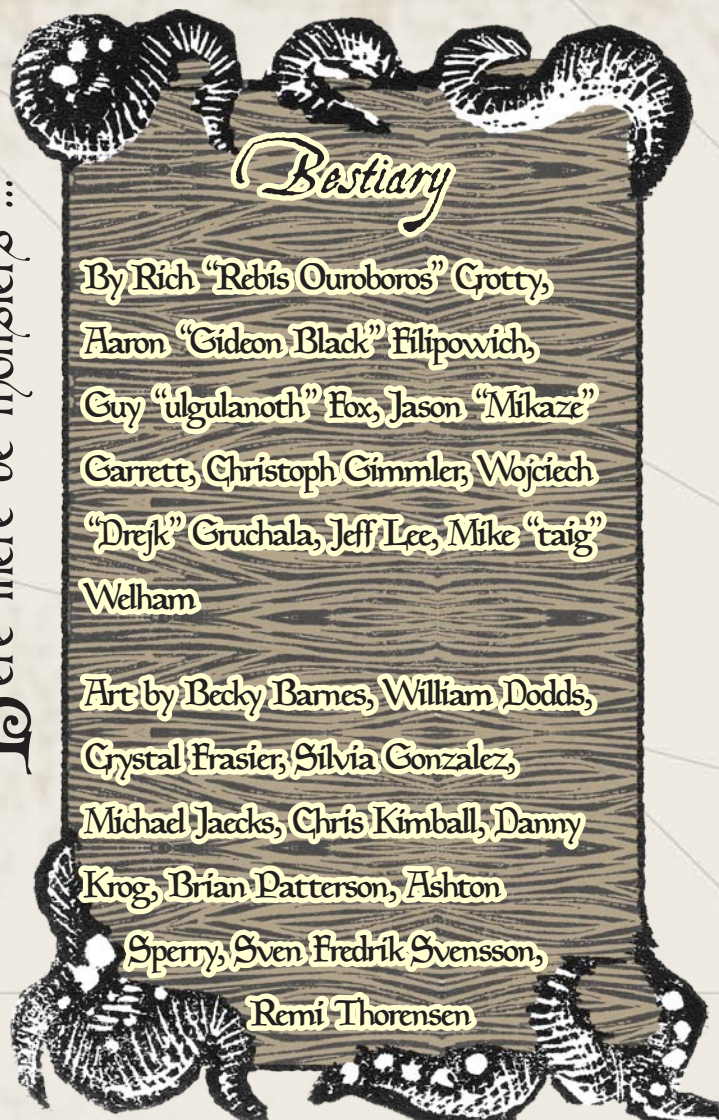 Bestiary
By Rich “Rebis Ouroboros” Crotty,
Aaron “Gideon Black” Filipowich,
Guy “ulgulanoth” Fox, Jason “Mikaze”
Garrett, Christoph Gimmler, Wojciech
“Drejk” Gruchala, Jeff Lee, Mike “taig”
Welham
Art by Becky Barnes, William Dodds,
Crystal Frasier, Silvia Gonzalez,
Michael Jaecks, Chris Kimball, Danny
Krog, Brian Patterson, Ashton
Sperry, Sven Fredrik Svensson,
Remi Thorensen